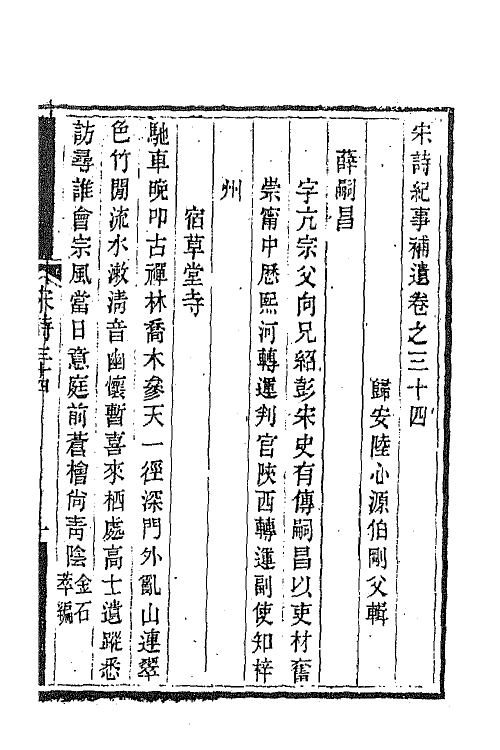 宋詩紀事補遺卷之三十四
歸安陸心源伯剛父輯
薛嗣昌
字亢宗父向兄紹彭宋史有傳嗣昌以吏材奮
崇甯中歷熙河轉運判官陝西轉運副使知梓
州
宿草堂寺
馳車晚叩古禪林喬木參天一徑深門外亂山連翠
色竹閒流水漱清音幽懷暫喜來栖處高士遺蹤悉
訪尋誰會宗風當日意庭前蒼檜尙靑陰金石
萃編
宋詩三十四
一